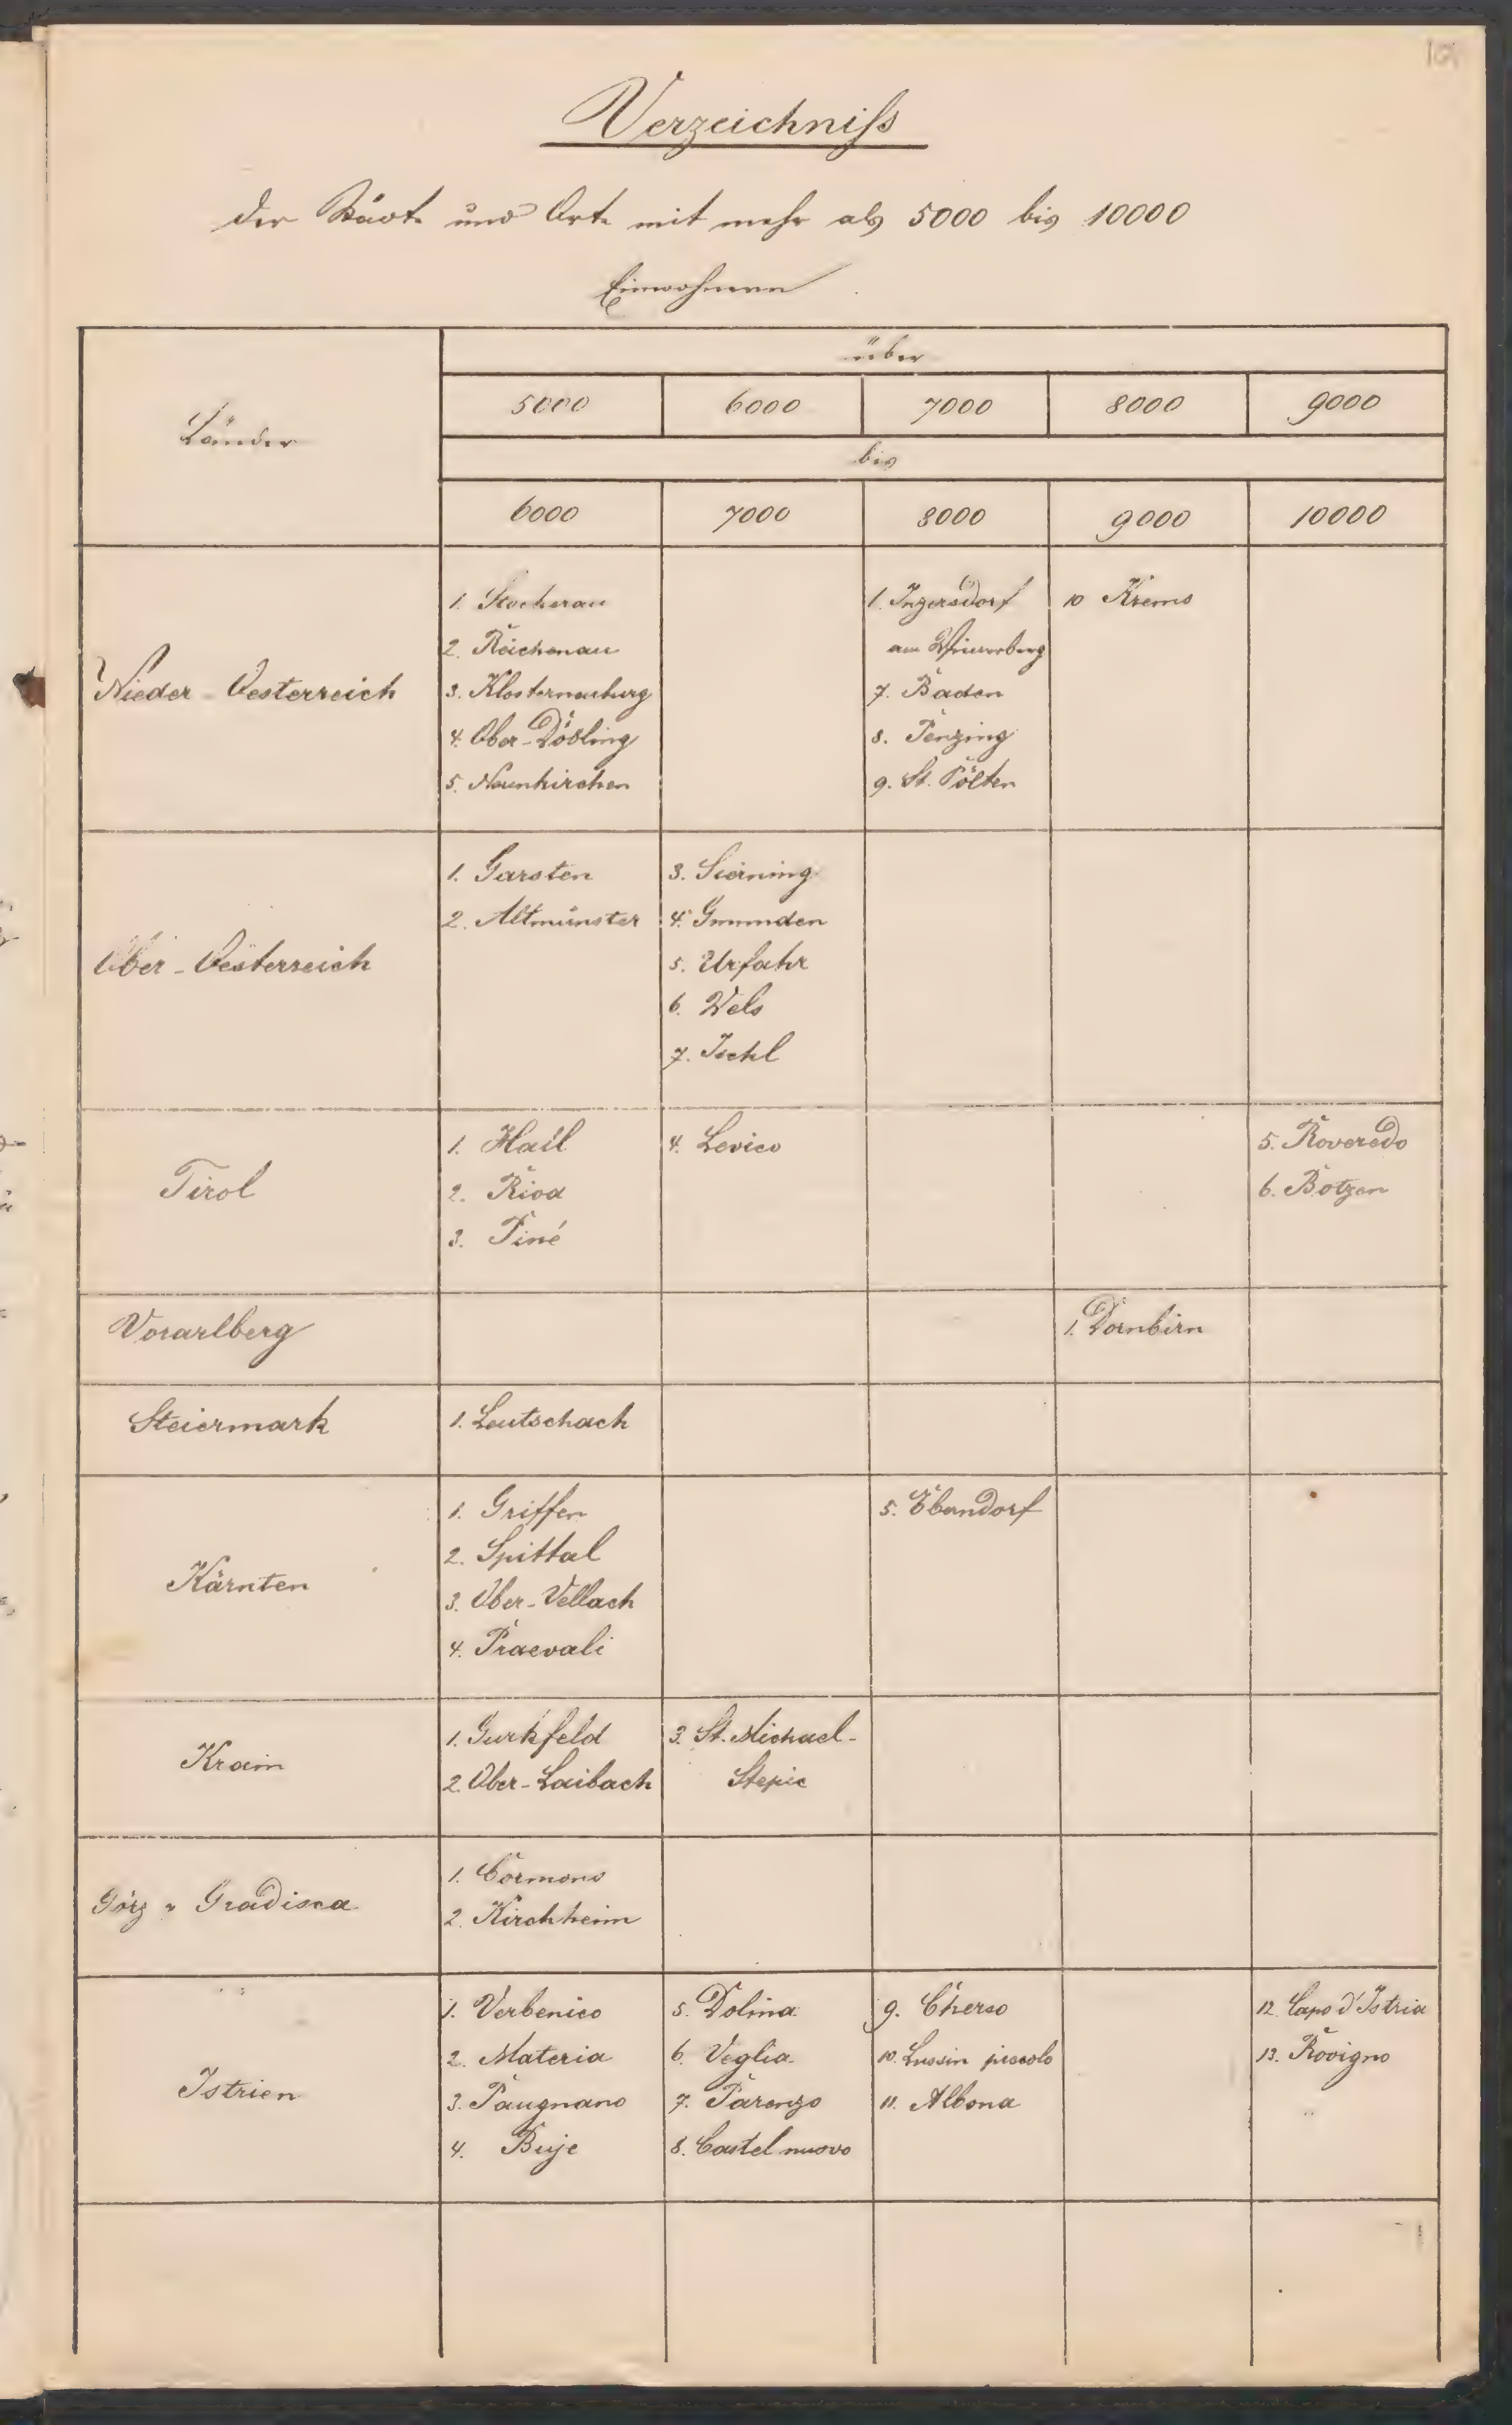 Verzeichniß
der Städte und Orte mit mehr als 5000 bis 10000
Einwohnern
Länder
über
5000 6000 7000 8000 9000
bis
6000 7000 8000 9000 10000
Nieder-Oesterreich
1. Stockerau
2. Reichenau
3. Klosterneuburg
4. Ober-Döbling
5. Neunkirchen
1. Inzersdorf
am Wienerberg
7. Baden
8. Penzing
9. St. Pölten
10 Krems
Ober-Oesterreich
1. Garsten
2. Altmünster
3. Sierning
4. Gmunden
5. Urfahr
6. Wels
7. Ischl
Tirol
1. Hall
2. Riva
3. Piné
4. Levico
5. Roveredo
6. Botzen
Vorarlberg
1. Dornbirn
Steiermark
1. Leutschach
Kärnten
1. Griffen
2. Spittal
3. Ober-Vellach
4. Praevali
5. Eberndorf
Krain
1. Gurkfeld
2. Ober-Laibach
3. St. Michael-
Stepic
Görz u Gradisca
1. Cormons
2. Kirchheim
Istrien
1. Verbenico
2. Materia
3. Paugnano
4. Buje
5. Dolina
6. Veglia
7. Parenzo
8. Castel nuovo
9. Cherso
10. Lussin piccolo
11. Albona
12. Capo d'Istria
13. Rovigno